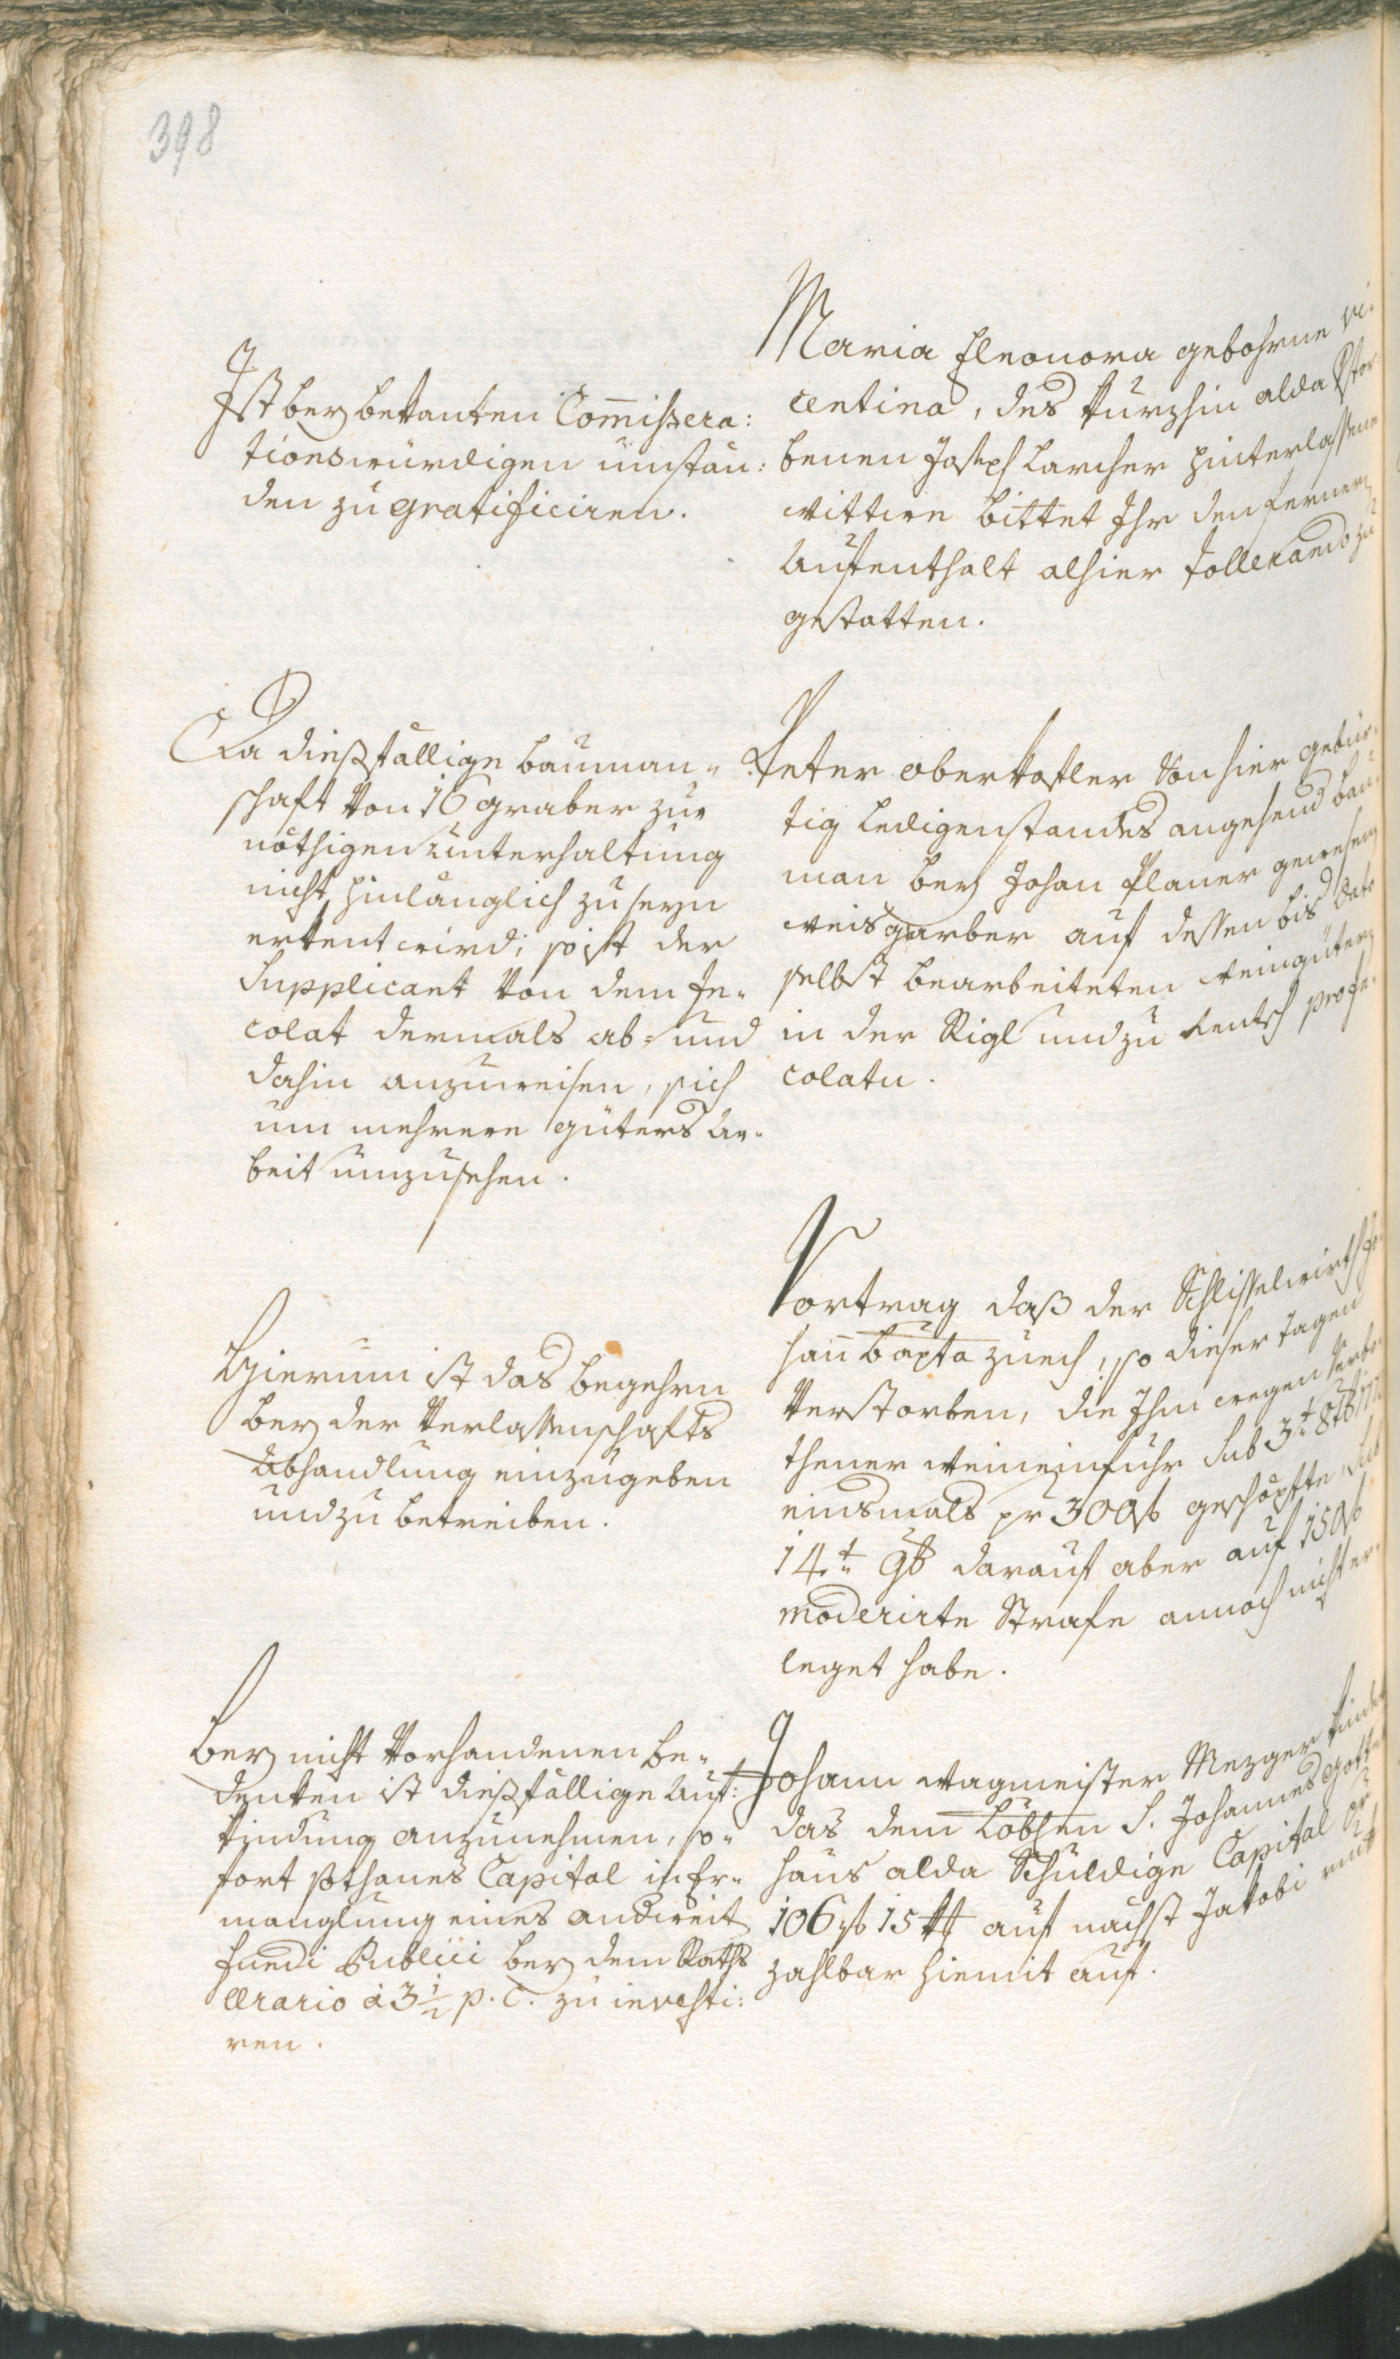 398
Ist bey bekanten Commisera:
tionswürdigen umstän:
den zu gratificiren.
Maria Eleonora gebohrne Vi-
centina, des kurzhin alda Vstor
benen Joseph Larcher hinterlassene
wittwe bittet Ihr den fernern
Aufenthalt alhier tollerando zu
gestatten.
Da dießfällige bauman-
schaft von 16 graber zur
nöthigen Unterhaltung
nicht hinlänglich zu seyn
erkent wird; so ist der
Supplicant von dem In-
colat dermals ab- und
dahin anzuweisen, sich
um mehrere güters Ar-
beit umzusehen.
Peter oberkofler von hier gebür-
tig ledigenstandes angehend bau-
man bey Johan Planer gewesenen
weisgarber auf dessen bis dato
selbst bearbeiteten weingütern
in der Rigl und zu Leitach pro In-
colatu.
Hierum ist das begehrn
bey der Verlassenschafts
Abhandlung einzugeben
und zu betreiben.
Vortrag daß der Schlisselwirth Jo-
hann bapta zuech, so dieser Tagen
Verstorben, die Ihm wegen Verbo-
thener weineinfuhr sub 3t 8b
einsmals pr 300 f geschöpfte, sub
14t 9b darauf aber auf 150 f
moderirte Strafe annoch nicht er-
leget habe.
bey nicht vorhandenen be-
denken ist dießfällige Auf:
kindung anzunehmen, so-
fort sothanes Capital in Er-
manglung eines anderweit
fundi Publici bey dem Raths
ærario à 3 1/2 p. C. zu investi:
ren.
Johann wagmeister Mezger kindet
das dem Löbhen S. Johannes gotts
haus alda Schuldige Capital pr
106 f 15 kr auf nächst Jakobi
zahlbar hiemit auf.